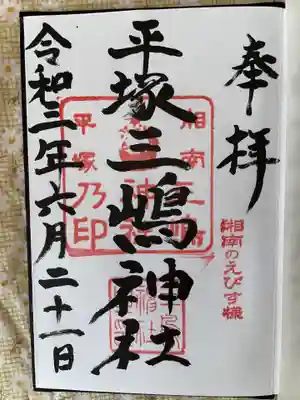 奉拝
湘南のえびす様
平塚三嶋神社
湘南
平塚乃印
令和三年六月二十一日